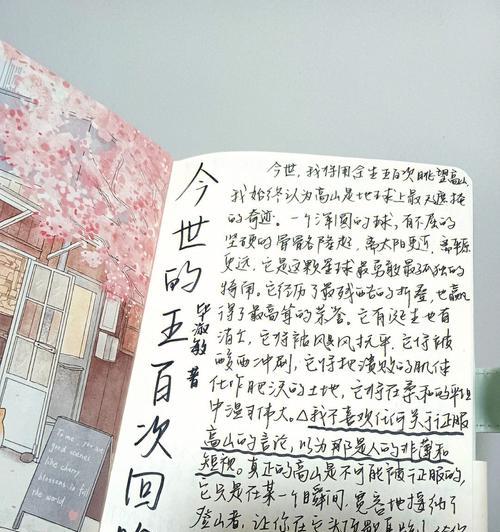 今世的五百次回
毕淑敏 著
今世，我将用余生五百次眺望高山
我始终认为高山是地球上最无遮掩
的奇迹。一个浑圆的球，有不屈的
坚硬的骨骼隆起，离太阳更近，离平原
更远，它是这颗星球最勇敢最孤独的
犄角。它经历了最残酷的折叠，也赢
得了最高等的荣誉。它有诞生也有
消亡，它将被飓风抚平，它将被
酸雨冲刷，它将把溃败的肌体
化作肥沃的土地，它将在柔和的平坦
中温习伟大。△我不喜欢任何关于征服
高山的言论，以为那是人的菲薄和
短视。真正的高山是不可能被征服的，
它只是在某一个瞬间，宽容地接纳了
登山者，让你在它头顶歇息
To me, you are
good scenes
like cherry
blossoms in full
the world